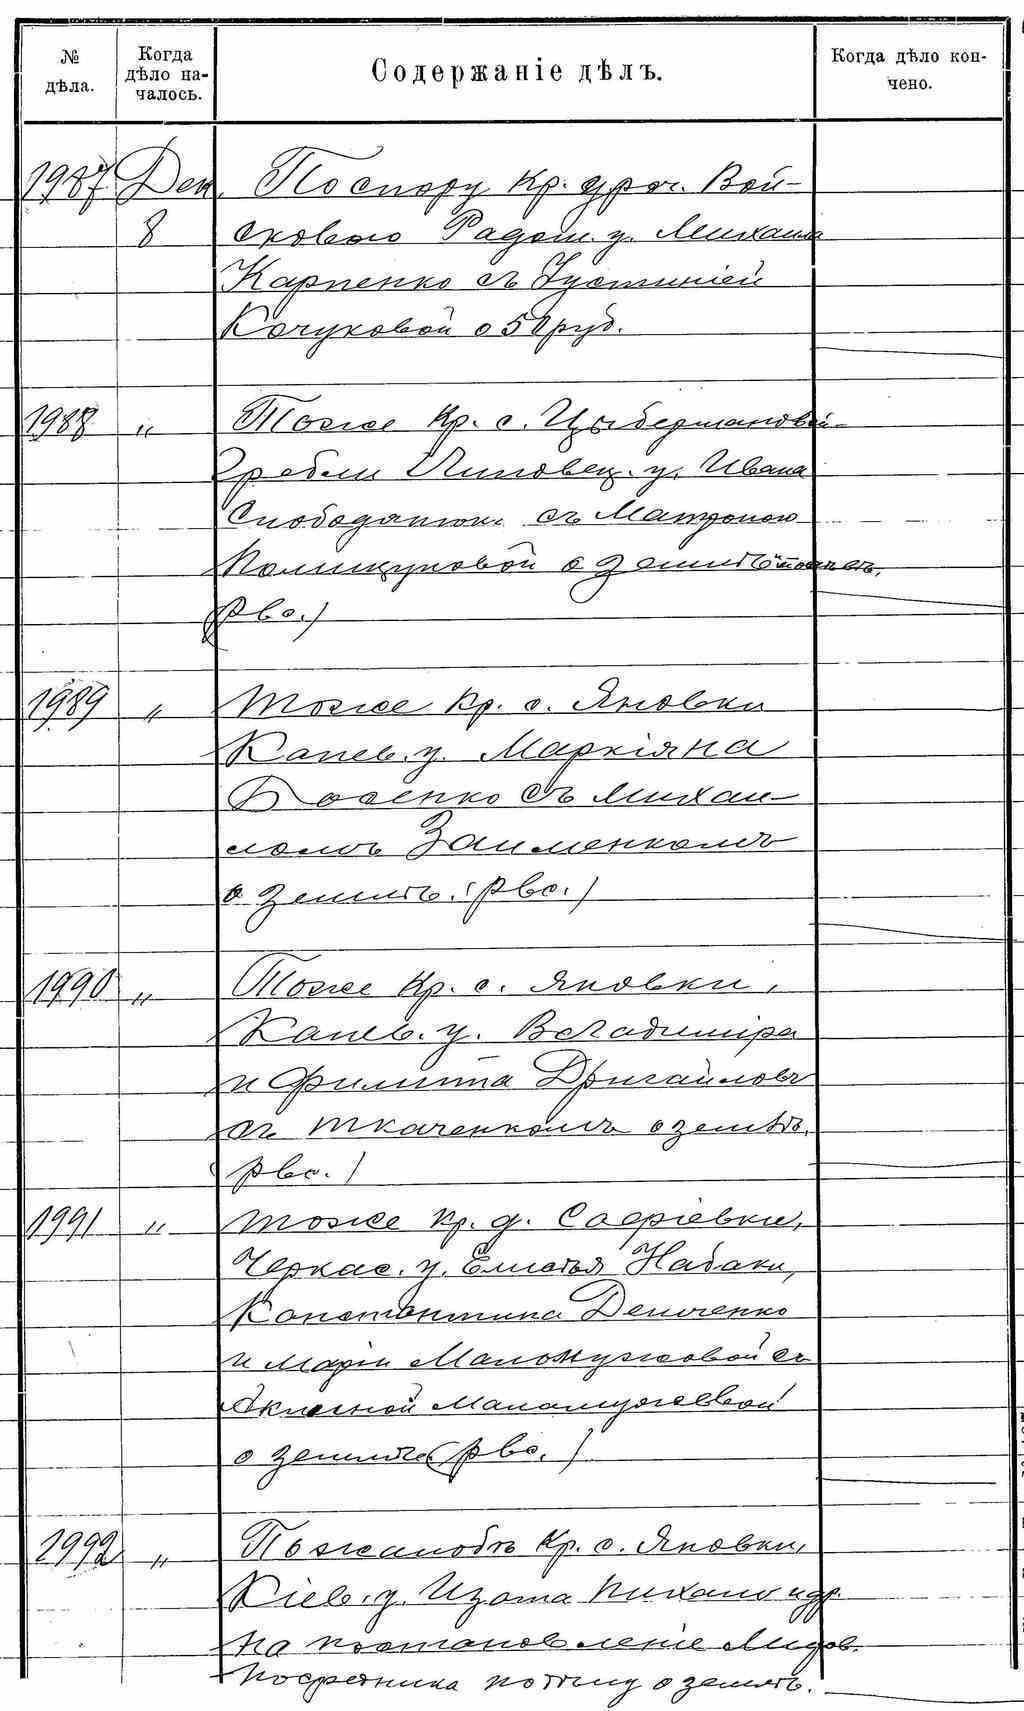 № дѣла.
Когда дѣло на-
чалось.
Содержаніе дѣлъ.
Когда дѣло кон-
чено.
1987 Дек. По спору Кр. уроч. Вой-
8 скового Радом. у. Михаила
Карпенко съ Іустиніей
Кочуковой о 50 руб.
1988 " Тоже Кр. с. Цыбермановой
Гребли Липовец. у. Ивана
Слободянюк. съ Матроною
Полищуковой о землѣ
рвс.)
1989 " Тоже Кр. с. Яновки
Канев. у. Маркіяна
Босенко съ Михаи-
ломъ Заименкомъ
о землѣ. (рвс.)
1990 " Тоже Кр. с. Яновки,
Канев. у. Владиміра
и Филиппа Дригайловъ
съ Ткаченкомъ о землѣ.
(рвс.)
1991 " Тоже Кр. д. Софіевки,
Черкас. у. Елисея Набоки,
Константина Демченко
и Маріи Маломужовой съ
Акилиной Маламужевой
о землѣ (рвс.)
1992 " По жалобѣ Кр. с. Яновки,
Кіев. у. Изота Пихало и др.
на постановленіе Миров.
Посредника по дѣлу о землѣ.